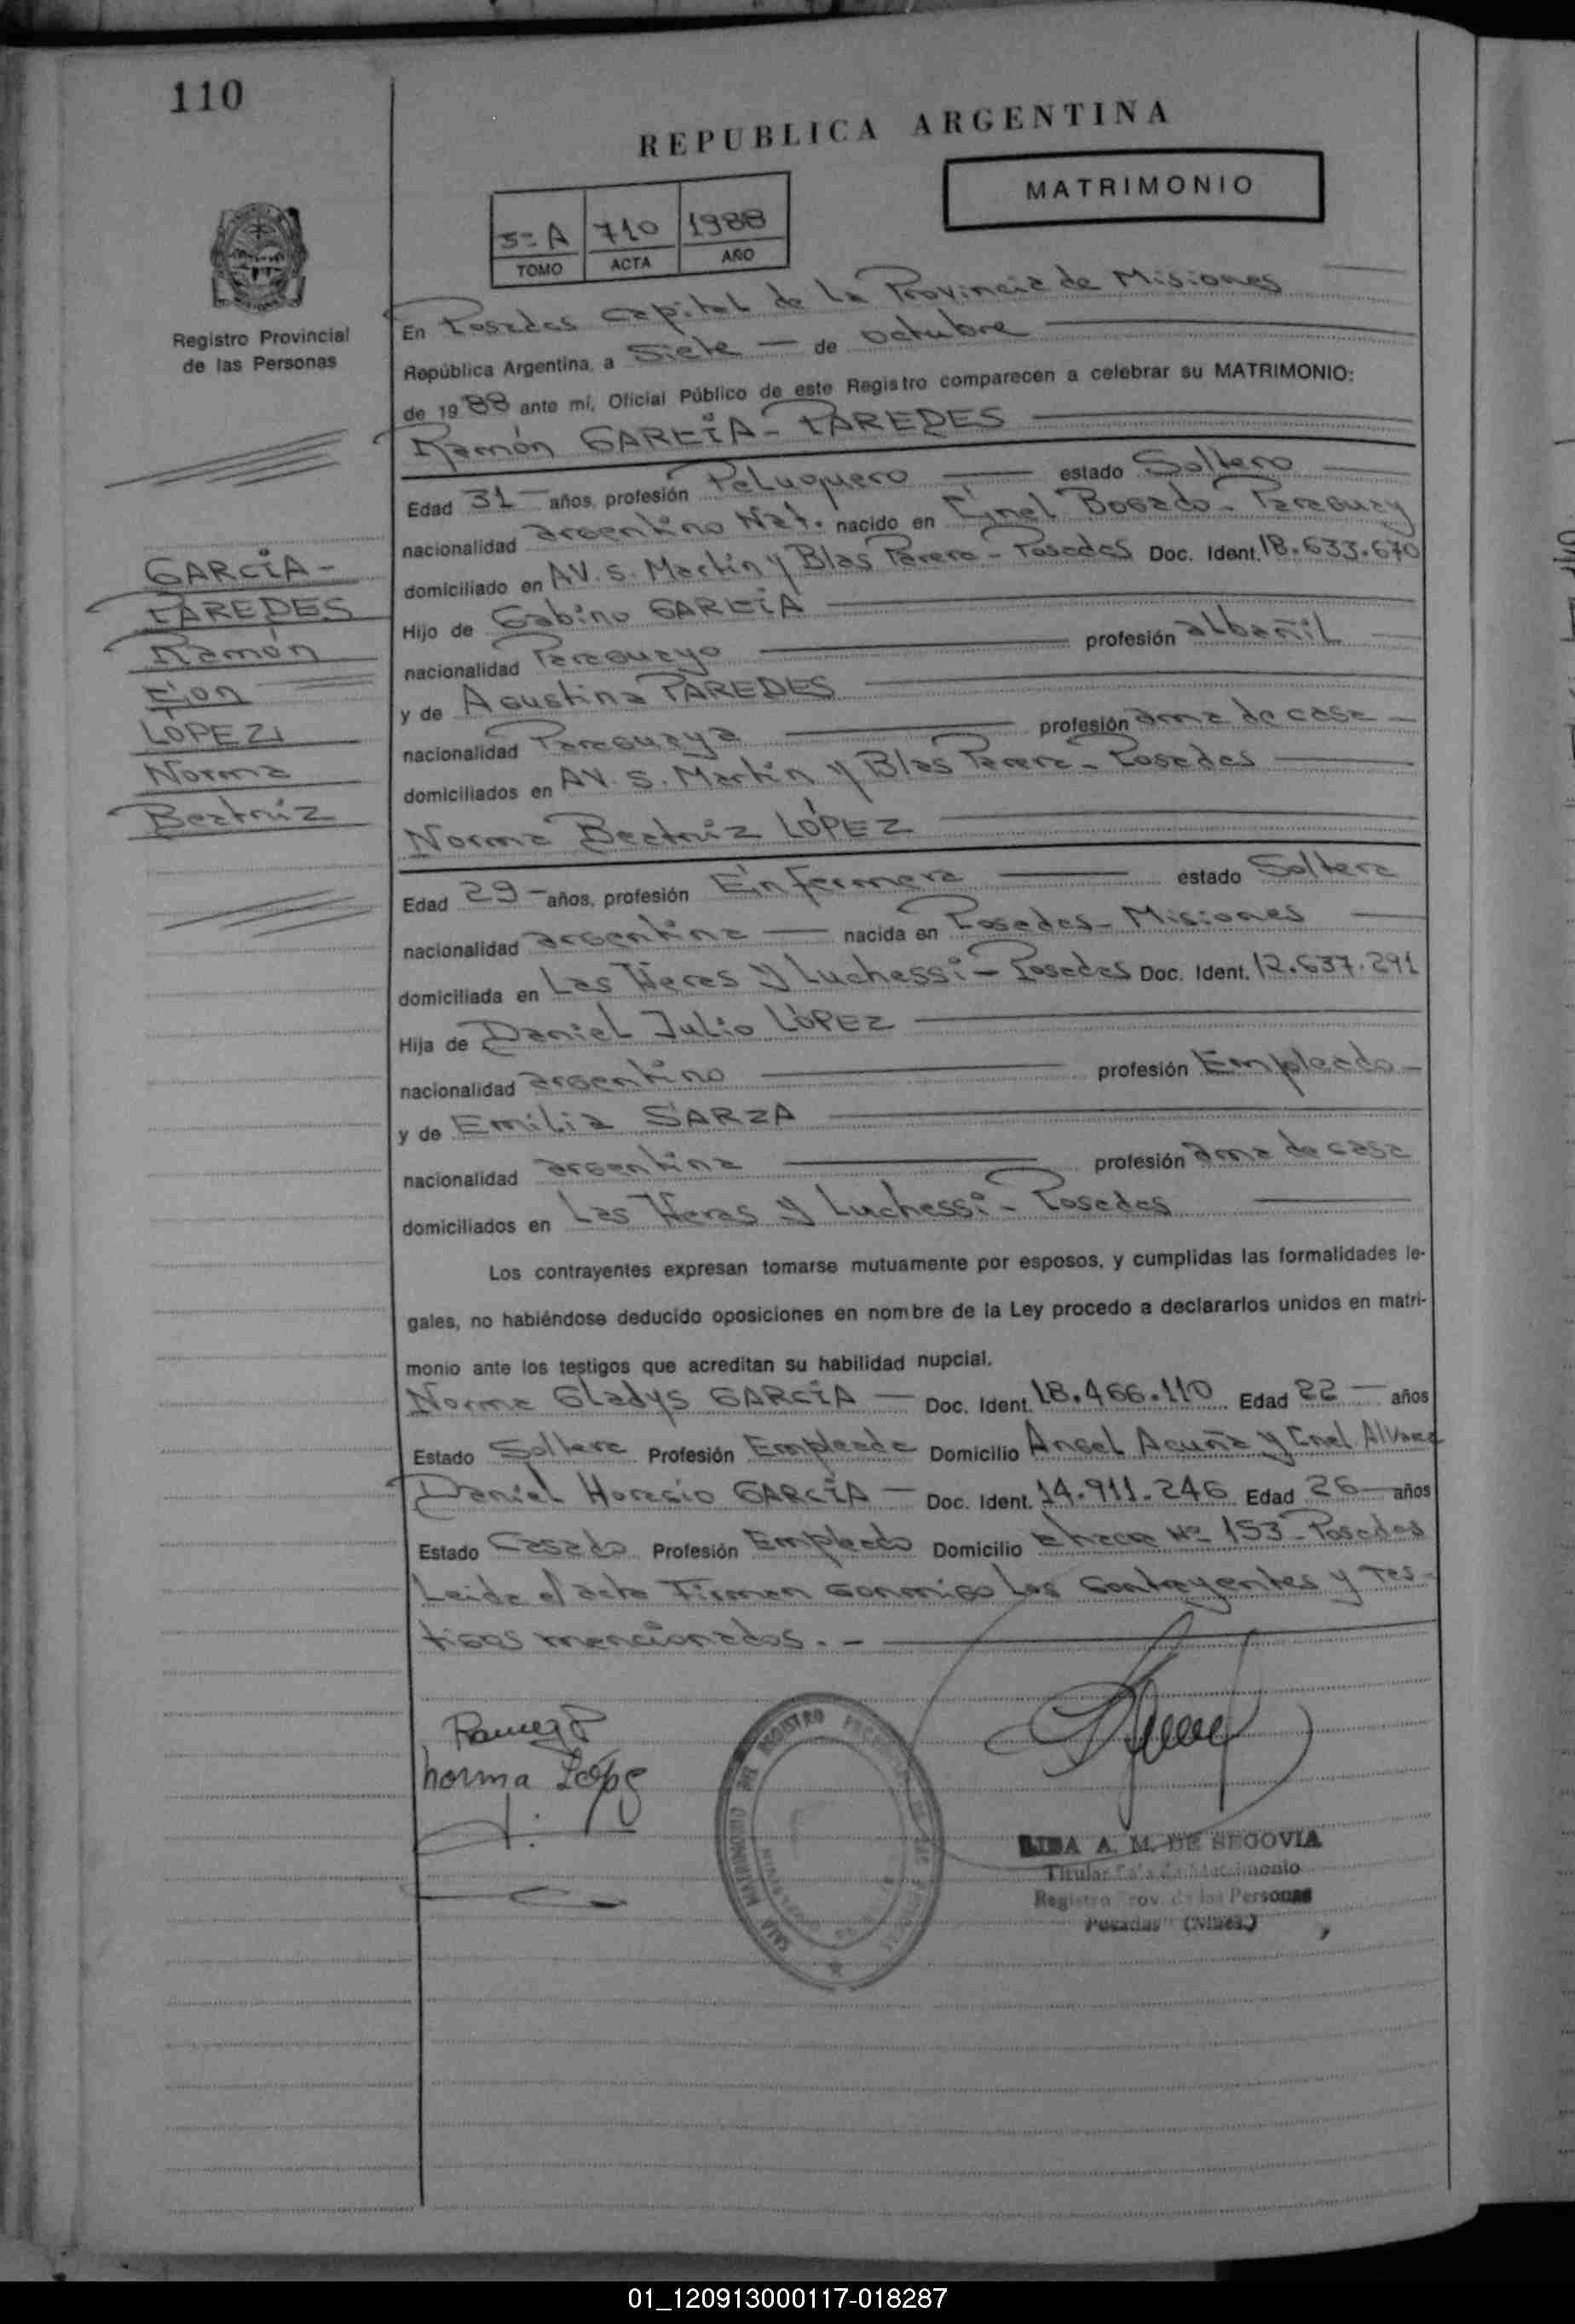 110
REPUBLICA ARGENTINA
MATRIMONIO
5º A 710 1988
TOMO ACTA AÑO
Registro Provincial
de las Personas
En Posadas Capital de la Provincia de Misiones
República Argentina, a Siete — de octubre
de 1988 ante mí, Oficial Público de este Registro comparecen a celebrar su MATRIMONIO:
Ramón GARCÍA - PAREDES
Edad 31 - años, profesión Peluquero estado Soltero
nacionalidad argentino Nat. nacido en Cnel Bogado - Paraguay
domiciliado en AV. S. Martín y Blas Parera - Posadas Doc. Ident. 18.633.670
Hijo de Gabino GARCÍA
nacionalidad Paraguayo profesión albañil
y de Agustina PAREDES
nacionalidad Paraguaya profesión ama de casa -
domiciliados en AV. S. Martín y Blas Parera - Posadas
Norma Beatriz LÓPEZ
Edad 29 - años, profesión Enfermera estado Soltera
nacionalidad argentina — nacida en Posadas - Misiones
domiciliada en Las Heras y Luchessi - Posadas Doc. Ident. 12.637.291
Hija de Daniel Julio LÓPEZ
nacionalidad argentino profesión Empleado -
y de Emilia SARZA
nacionalidad argentina profesión ama de casa
domiciliados en Las Heras y Luchessi - Posadas
GARCÍA -
PAREDES
Ramón
Con
LOPEZ,
Norma
Beatriz
Los contrayentes expresan tomarse mutuamente por esposos, y cumplidas las formalidades le-
gales, no habiéndose deducido oposiciones en nombre de la Ley procedo a declararlos unidos en matri-
monio ante los testigos que acreditan su habilidad nupcial.
Norma Gladys GARCÍA — Doc. Ident. 18.466.110 Edad 22 — años
Estado Soltera Profesión Empleada Domicilio Angel Acuña y Cnel Alvarez
Daniel Horacio GARCÍA — Doc. Ident. 14.911.246 Edad 26 — años
Estado Casado Profesión Empleado Domicilio Chacra Nº 153 - Posadas
Leida el acta Firman conmigo los contrayentes y tes-
tigos mencionados. -
Norma López
SALA MATRIMONIO DEL REGISTRO PROVINCIAL DE LAS PERSONAS
LIDA A. M. DE SEGOVIA
Titular Sala de Matrimonio
Registro Prov. de las Personas
Posadas (Mnes.)
01_120913000117-018287